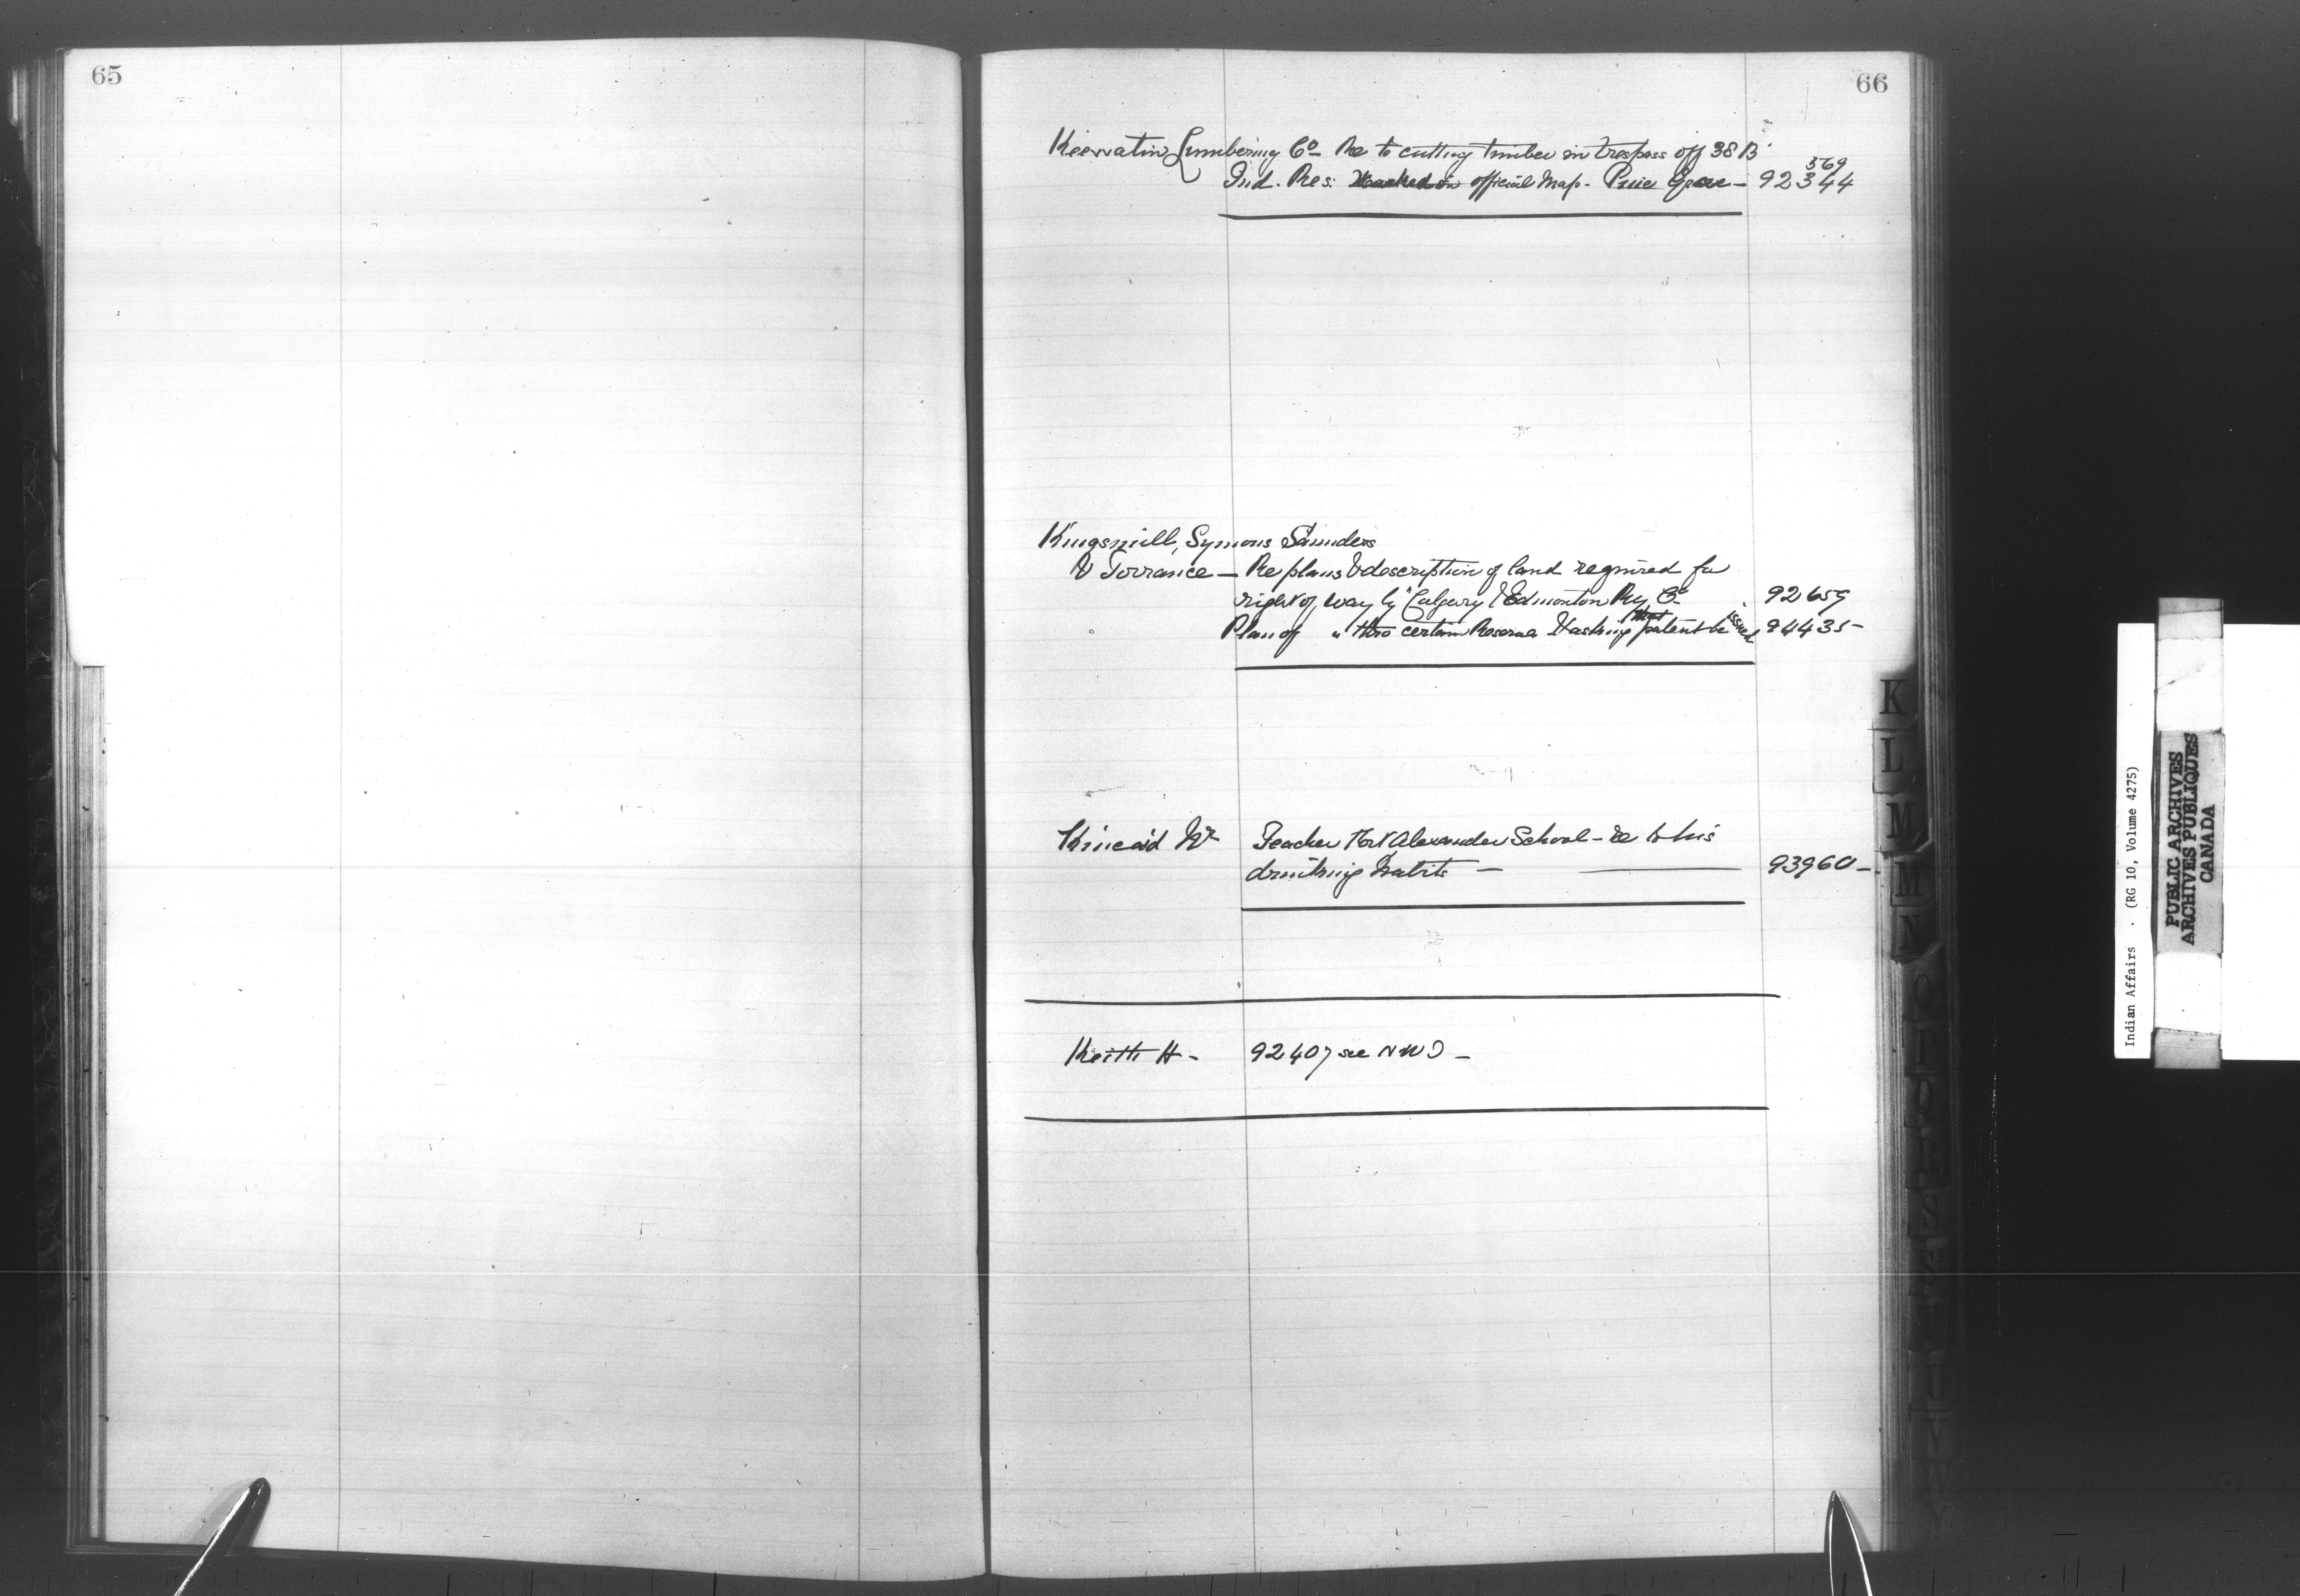 65
66
Keewatin Lumbering Co Re to cutting timber in trespass off 38 B
569
Ind. Res: Marked on official Map - Pine Grove - 92344
Kingsmill, Symons Saunders
& Torrance - Re plans & description of land required for
right of way by "Calgary & Edmonton Ry Co 92659
that issued
Plan of " thro certain Reserve & asking patent be 94435-
Kincaid Wm Teacher Fort Alexander School - re to his
drinking habits - 93960-
Keith H- 92407 see NWT -
K
L
M
M
N
Indian Affairs . (RG 10, Volume 4275)
PUBLIC ARCHIVES
ARCHIVES PUBLIQUES
CANADA